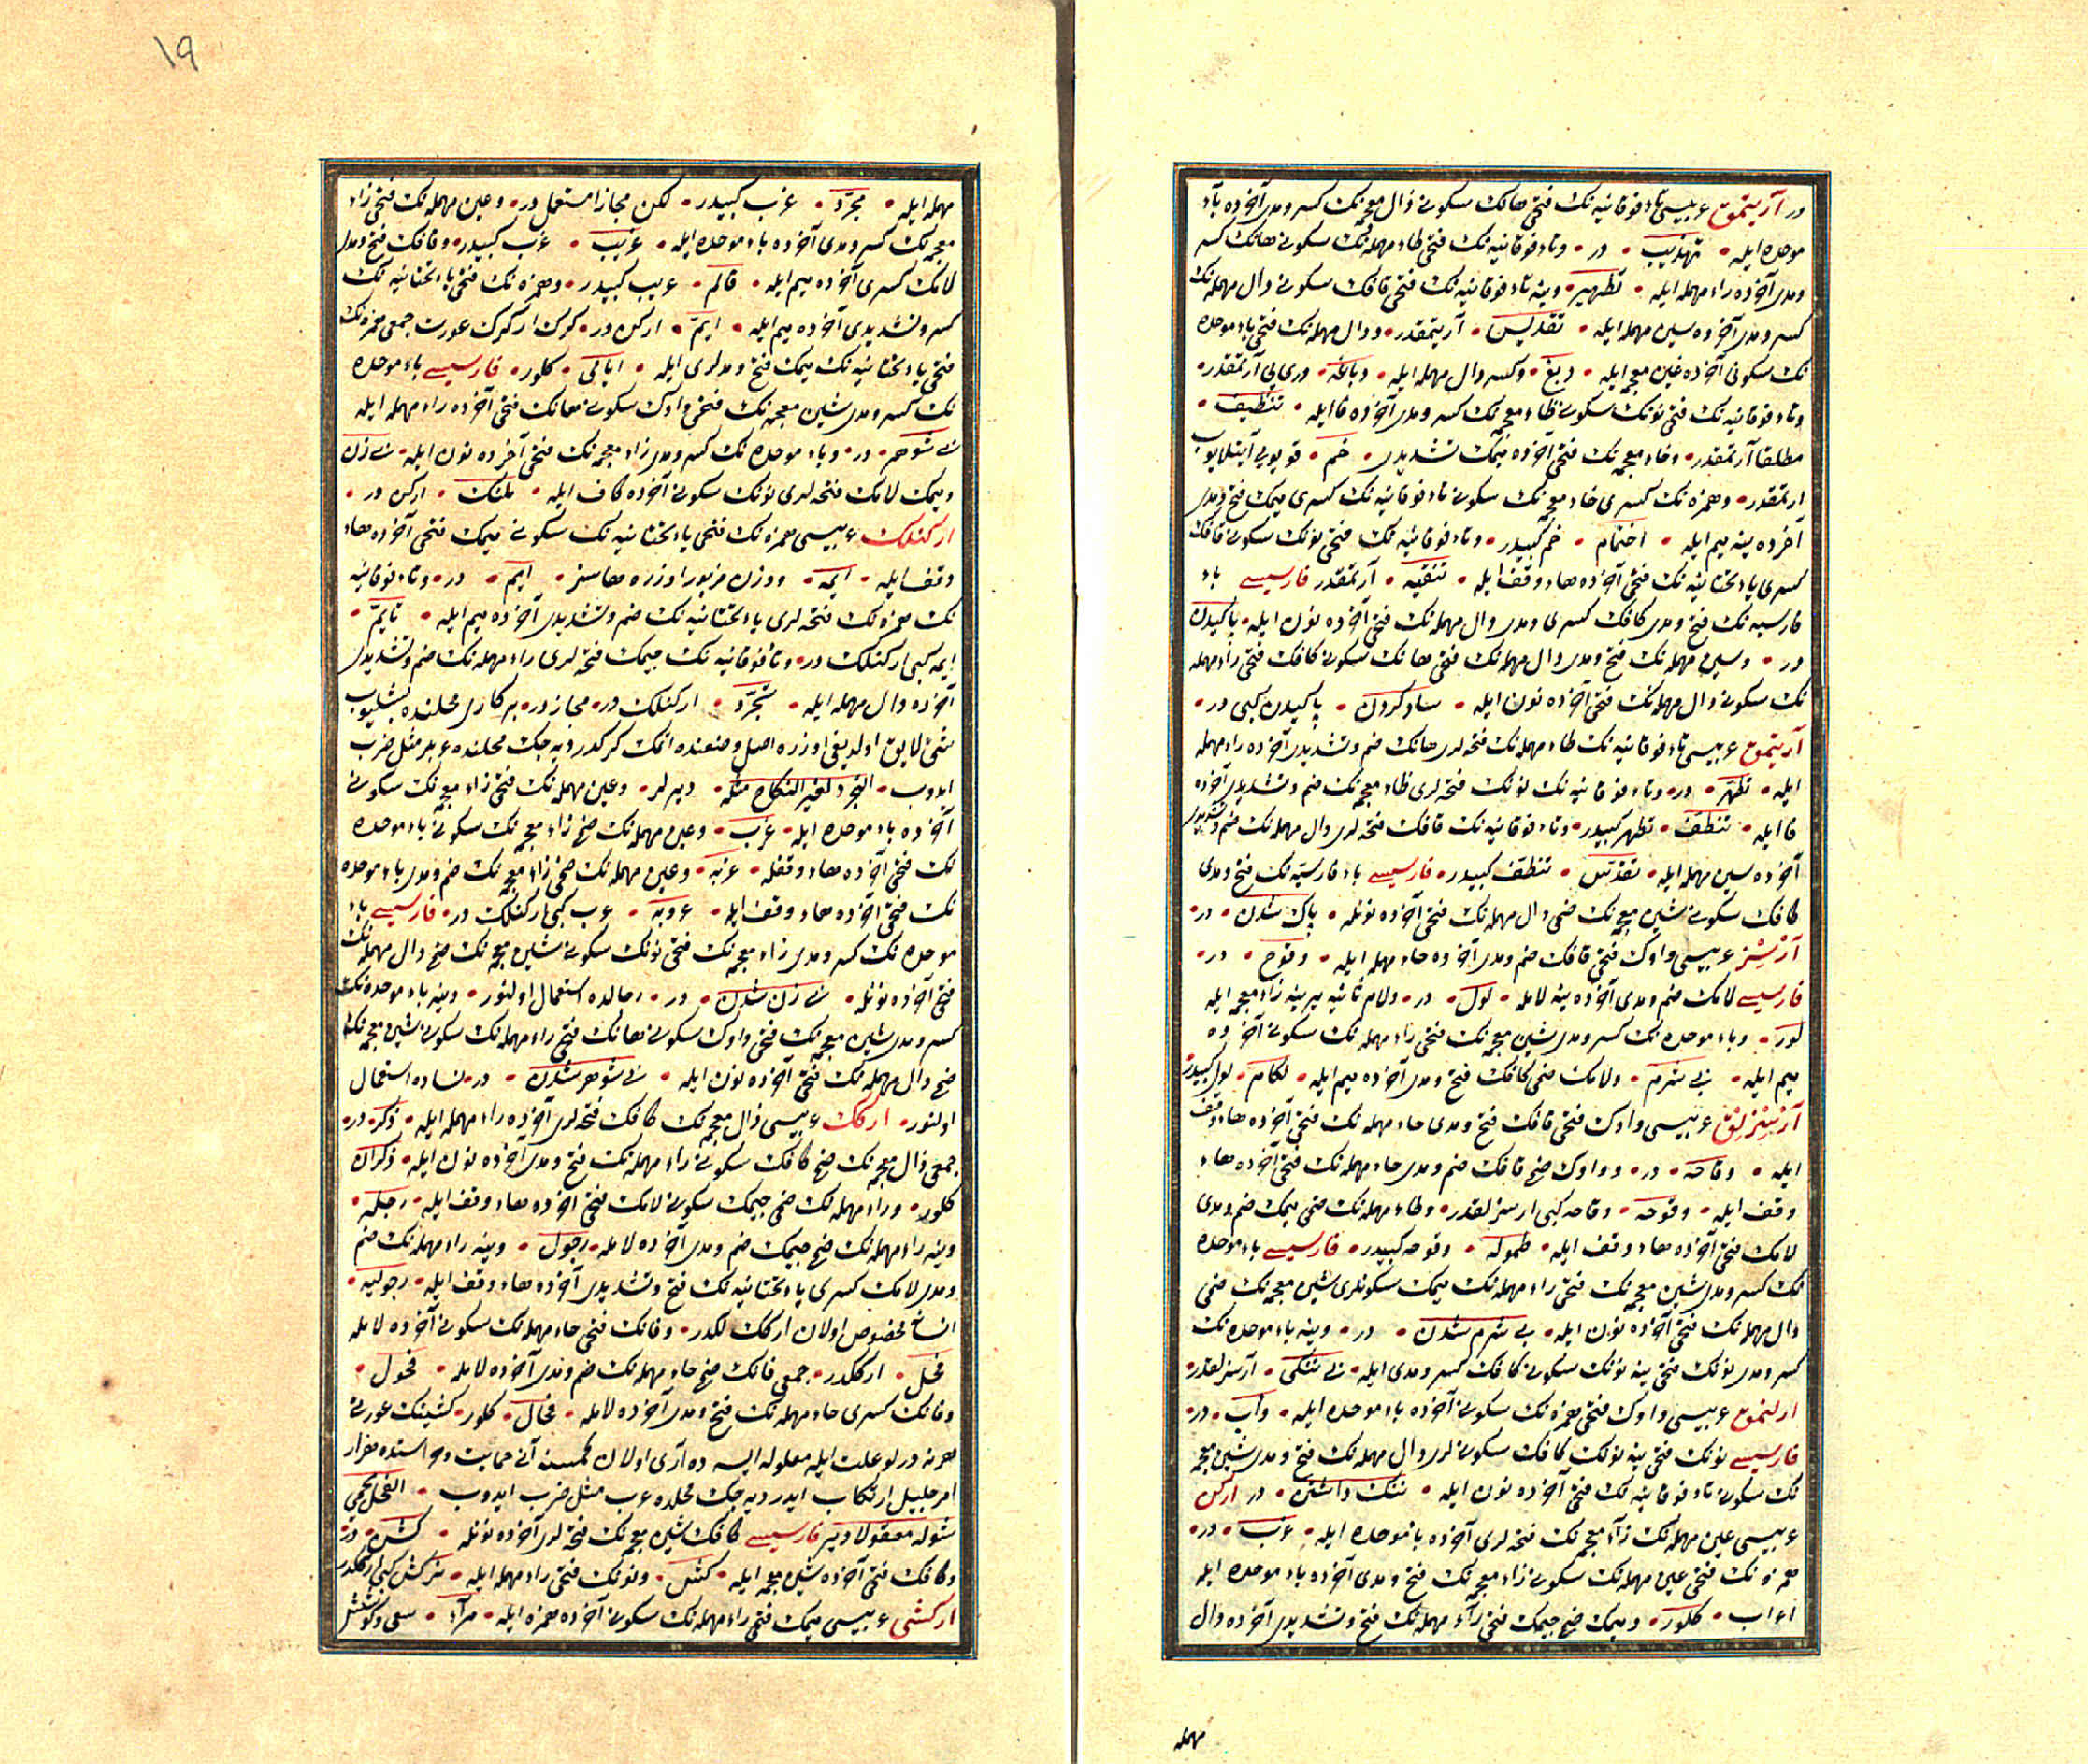 در آریتمق عربیسی تاء فوقانیه نک فتحی هانک سکونی ذال معجمه نک کسر و مدی آخرده باء
موحده ایله • تهذیب • در • و تاء فوقانیه نک فتحی طاء مهمله نک سکونی هانک کسر
و مدی آخرده راء مهمله ایله • تطهیر • و ینه تاء فوقانیه نک فتحی قافک سکونی دال مهمله نک
کسر و مدی آخرده سین مهمله ایله • تقدیس • آریتمقدر • و دال مهمله نک فتحی باء موحده
نک سکونی آخرده غین معجمه ایله • دبغ • و کسر دال مهمله ایله • دباغة • دری یی آرتمقدر •
و تاء فوقانیه نک فتحی نونک سکونی ظاء معجمه نک کسر و مدی آخرده فا ایله • تنظیف •
مطلقا آرتمقدر • و خاء معجمه نک فتحی آخرده میمک تشدیدی • خم • قویویی آیتلایوب
ارتمقدر • و همزه نک کسری خاء معجمه نک سکونی تاء فوقانیه نک کسری میمک فتح و مدی
آخرده ینه میم ایله • اختمام • خم کبیدر • و تاء فوقانیه نک فتحی نونک سکونی قافک
کسری یاء تحتانیه نک فتحی آخرده هاء وقف ایله • تنقیه • آرتمقدر فارسیسی باء
فارسیه نک فتح و مدی کافک کسری و مدی دال مهمله نک فتحی آخرده نون ایله • پاکیدن
در • و سین مهمله نک فتح و مدی دال مهمله نک فتحی هانک سکونی کافک فتحی راء مهمله
نک سکونی دال مهمله نک فتحی آخرده نون ایله • ساده کردن • پاکیدن کبی در •
آریتمق عربیسی تاء فوقانیه نک طاء مهمله نک فتحه لری هانک ضم و تشدیدی آخرده راء مهمله
ایله • تطهر • در • و تاء فوقانیه نک نونک فتحه لری ظاء معجمه نک ضم و تشدیدی آخرده
فا ایله • تنظف • تطهر کبیدر • و تاء فوقانیه نک قافک فتحه لری دال مهمله نک ضم و تشدیدی
آخرده سین مهمله ایله • تقدس • تنظف کبیدر • فارسیسی باء فارسیه نک فتح و مدی
کافک سکونی شین معجمه نک ضمی دال مهمله نک فتحی آخرده نونله • پاک شدن • در •
آرسز عربیسی واوک فتحی قافک ضم و مدی آخرده حاء مهمله ایله • وقوح • در •
فارسیسی لامک ضم و مدی آخرده ینه لامله • لول • در • و لام ثانیه یرینه زاء معجمه ایله
لوز • و باء موحده نک کسر و مدی شین معجمه نک فتحی راء مهمله نک سکونی آخرده
میم ایله • بی شرم • و لامک ضمی کافک فتح و مدی آخرده میم ایله • لکام • لول کبیدر
آرسزلق عربیسی واوک فتحی قافک فتح و مدی حاء مهمله نک فتحی آخرده هاء وقف
ایله • وقاحه • در • و واوک ضمی قافک ضم و مدی حاء مهمله نک فتحی آخرده هاء
وقف ایله • وقوحه • وقاحه کبی ارسزلقدر • و طاء مهمله نک ضمی میمک ضم و مدی
لامک فتحی آخرده هاء وقف ایله • طموله • وقوحه کبیدر • فارسیسی باء موحده
نک کسر و مدی شین معجمه نک فتحی راء مهمله نک میمک سکونلری شین معجمه نک ضمی
دال مهمله نک فتحی آخرده نون ایله • بی شرم شدن • در • و ینه باء موحده نک
کسر و مدی نونک فتحی ینه نونک سکونی کافک کسر و مدی ایله • بی ننکی • آرسزلقدر
ارلنمق عربیسی واوک فتحی همزه نک سکونی آخرده باء موحده ایله • وأب • در •
فارسیسی نونک فتحی ینه نونک کافک سکونی لری دال مهمله نک فتح و مدی شین معجمه
نک سکونی تاء فوقانیه نک فتحی آخرده نون ایله • ننک داشتن • در ارکن
عربیسی عین مهمله نک زاء معجمه نک فتحه لری آخرده باء موحده ایله • عزب • در •
همزه نک فتحی عین مهمله نک سکونی زاء معجمه نک فتح و مدی آخرده باء موحده ایله
اعزاب • کلور • و میمک ضمی جیمک فتحی راء مهمله نک فتح و تشدیدی آخرده دال
مهمله
۱۹
مهمله ایله • مجرد • عزب کبیدر • لکن مجازا مستعمل در • و عین مهمله نک فتحی زاء
معجمه نک کسر و مدی آخرده باء موحده ایله • عزیب • عزب کبیدر • و قافک فتح و مدی
لامک کسری آخرده میم ایله • قالم • عزیب کبیدر • و همزه نک فتحی یاء تحتانیه نک
کسر و تشدیدی آخرده میم ایله • ایم • ارکن در • کرک ار کرک عورت جمعی همزه نک
فتحی یاء تحتانیه نک میمک فتح و مدلری ایله • ایامی • کلور • فارسیسی باء موحده
نک کسر و مدی شین معجمه نک فتحی واوک سکونی هانک فتحی آخرده راء مهمله ایله
بی شوهر • در • و باء موحده نک کسر و مدی زاء معجمه نک فتحی آخرده نون ایله • بی زن
و میمک لامک فتحه لری نونک سکونی آخرده کاف ایله • ملنک • ارکن در •
ارکنلک عربیسی همزه نک فتحی یاء تحتانیه نک سکونی میمک فتحی آخرده هاء
وقف ایله • ایمه • و وزن مزبور اوزره هاسز • ایم • در • و تاء فوقانیه
نک همزه نک فتحه لری یاء تحتانیه نک ضم و تشدیدی آخرده میم ایله • تایم •
ایمه کبی ارکنلک در • و تاء فوقانیه نک جیمک فتحه لری راء مهمله نک ضم و تشدیدی
آخرده دال مهمله ایله • تجرد • ارکنلک در • مجاز در • بر کاری محلنده بشلیوب
شی لایق اولدیغی اوزره اصل و صنعنده انمک کرکدر دیه جک محلنده عربلر مثل ضرب
ایدوب • التجرد لغیر النکاح مثله • دیرلر • و عین مهمله نک فتحی زاء معجمه نک سکونی
آخرده باء موحده ایله • عزب • و عین مهمله نک ضمی زاء معجمه نک سکونی باء موحده
نک فتحی آخرده هاء وقفله • عزبه • و عین مهمله نک ضمی زاء معجمه نک ضم و مدی باء موحده
نک فتحی آخرده هاء وقف ایله • عزوبه • عزب کبی ارکنلک در • فارسیسی باء
موحده نک کسر و مدی زاء معجمه نک فتحی نونک سکونی شین معجمه نک ضمی دال مهمله نک
فتحی آخرده نونله • بی زن شدن • در • رجالده استعمال اولنور • و ینه باء موحده نک
کسر و مدی شین معجمه نک فتحی واوک سکونی هانک فتحی راء مهمله نک سکونی شین معجمه نک
ضمی دال مهمله نک فتحی آخرده نون ایله • بی شوهر شدن • در • نساده استعمال
اولنور • ارکک عربیسی ذال معجمه نک کافک فتحه لری آخرده راء مهمله ایله • ذکر • در •
جمعی ذال معجمه نک ضمی کافک سکونی راء مهمله نک فتح و مدی آخرده نون ایله • ذکران
کلور • و راء مهمله نک ضمی جیمک سکونی لامک فتحی آخرده هاء وقف ایله • رجله •
و ینه راء مهمله نک ضمی جیمک ضم و مدی آخرده لامله • رجول • و ینه راء مهمله نک ضم
و مدی لامک کسری یاء تحتانیه نک فتح و تشدیدی آخرده هاء وقف ایله • رجولیه •
انسانه مخصوص اولان ارککلکدر • و فانک فتحی حاء مهمله نک سکونی آخرده لامله
فحل • ارککدر • جمعی فانک ضمی حاء مهمله نک ضم و مدی آخرده لامله • فحول •
و فانک کسری حاء مهمله نک فتح و مدی آخرده لامله • فحال • کلور • کشینک عورتی
هر نه درلو علت ایله معلوله ایسه ده آری اولان کمسنه آنی حمایت و استنده هزار
امر جلیل ارتکاب ایدر دیه جک محلده عرب مثل ضرب ایدوب • الفحل یحمی
شوله معقولا دیر فارسیسی کافک شین معجمه نک فتحه لری آخرده نونله • کشن • در •
و کافک فتحی آخرده شین معجمه ایله • کش • و نونک فتحی راء مهمله ایله • نر کش کبی ارککدر
ارکشی عربیسی میمک فتحی راء مهمله نک سکونی آخرده همزه ایله • مرأ • سعی و کوشش